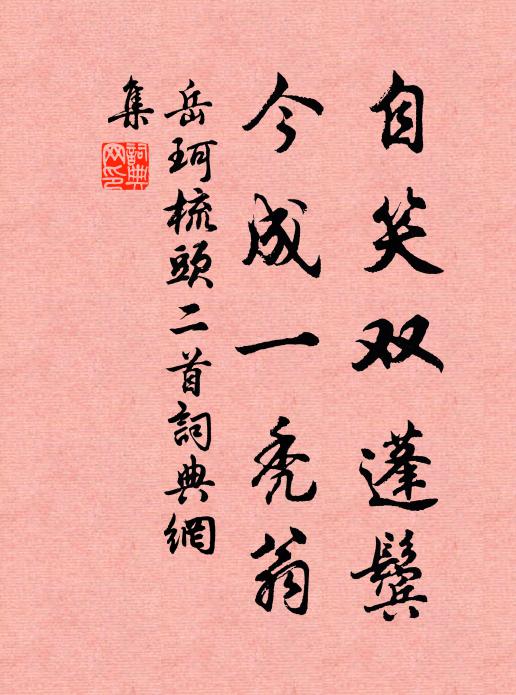 自笑双蓬鬓
今成一秃翁
岳珂梳頭二首詞典網
集
詞典
网印